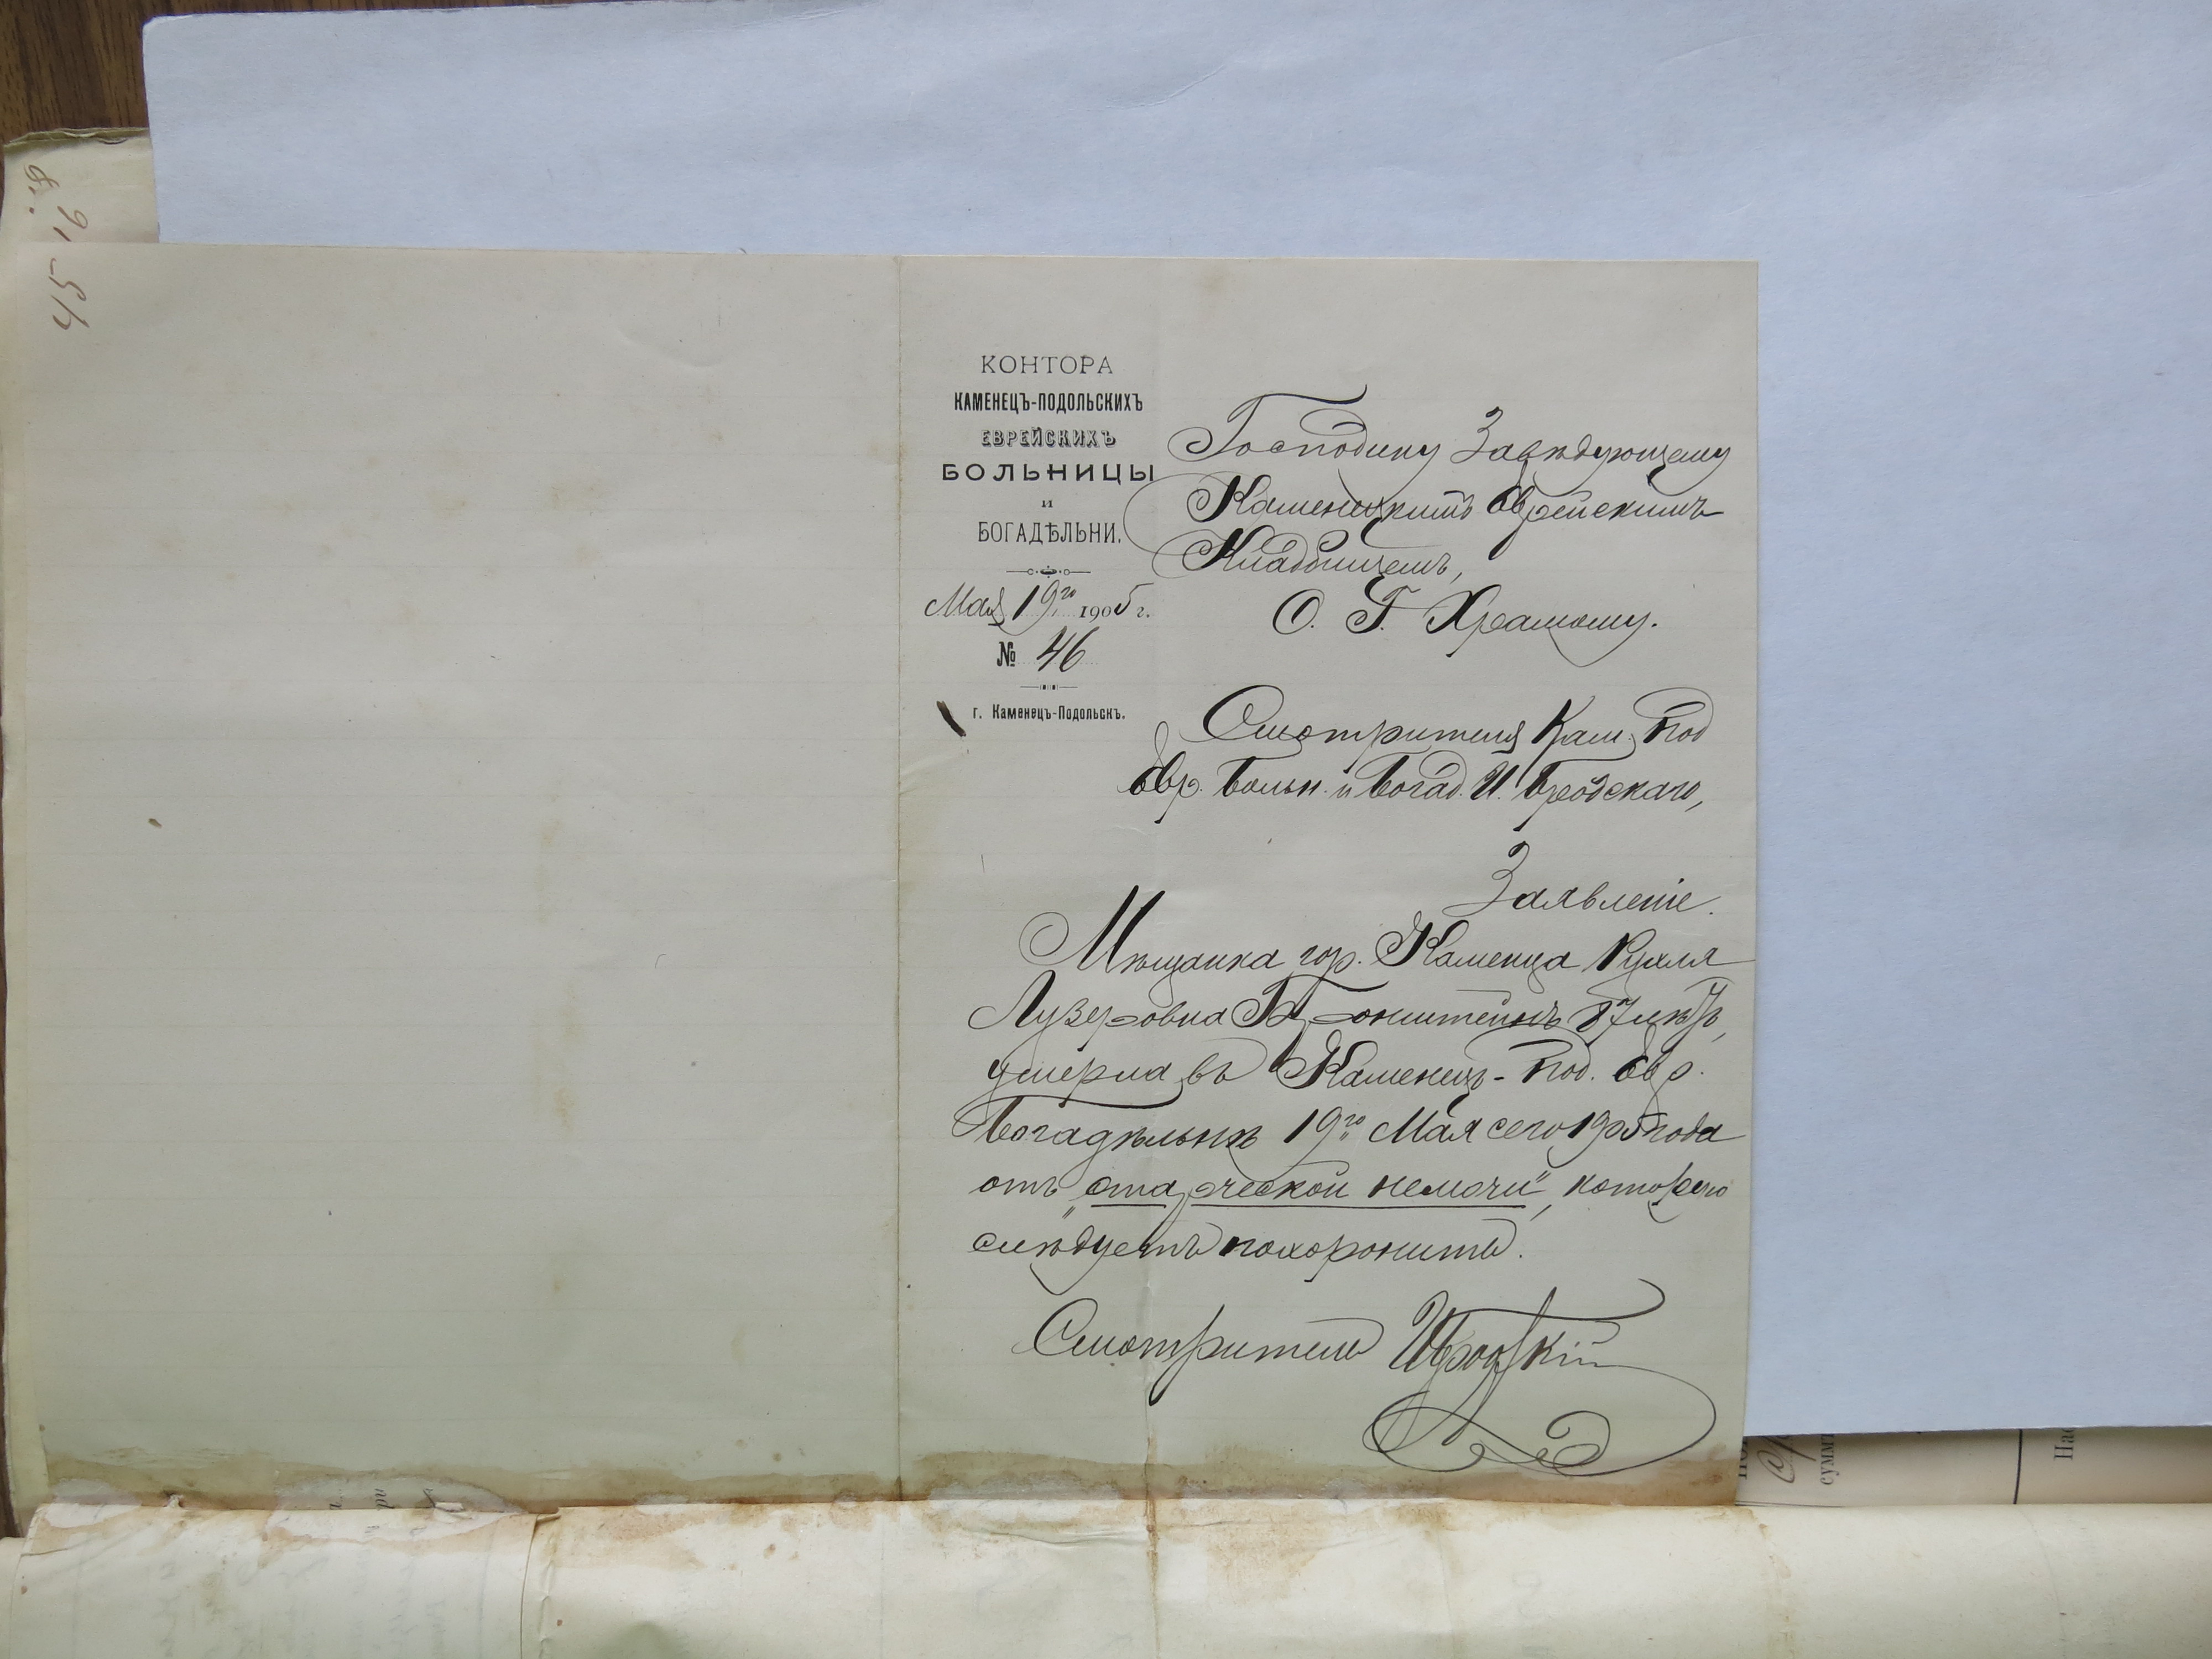 КОНТОРА
КАМЕНЕЦЪ-ПОДОЛЬСКИХЪ
ЕВРЕЙСКИХЪ
БОЛЬНИЦЫ
и
БОГАДѢЛЬНИ.
Мая 19го 1905 г.
№ 46
г. Каменецъ-Подольскъ.
Господину Завѣдующему
Каменецкимъ Еврейскимъ
Кладбищемъ,
О. Г. Храмому.
Смотрителя Кам. Под
Евр. Больн. и Богад. И. Бродскаго,
Заявленіе.
Мѣщанка гор. Каменца Рухля
Лузеровна Бронштейнъ 87 лѣтъ,
умерла въ Каменец-Под. Евр.
Богадѣльнѣ 19го Мая сего 1905 года
отъ „старческой немочи", которую
слѣдуетъ похоронить.
Смотритель ИБродскій